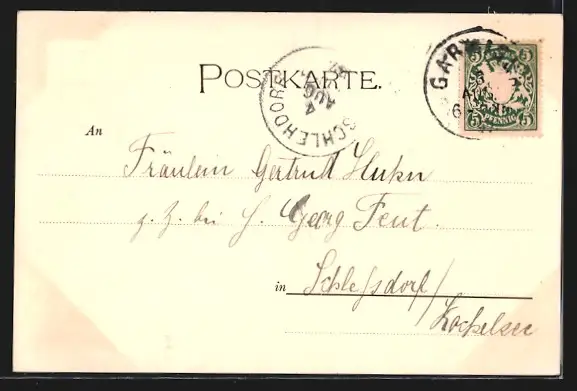 POSTKARTE.
SCHLEHDORF
4
AUG
GARMISCH
3
AUG.
5 5
PFENNIG
5 5
An
Fräulein Gertrud Huhn
z. Z. bei H. Georg Feut.
in Schlehdorf/
Kochelsee